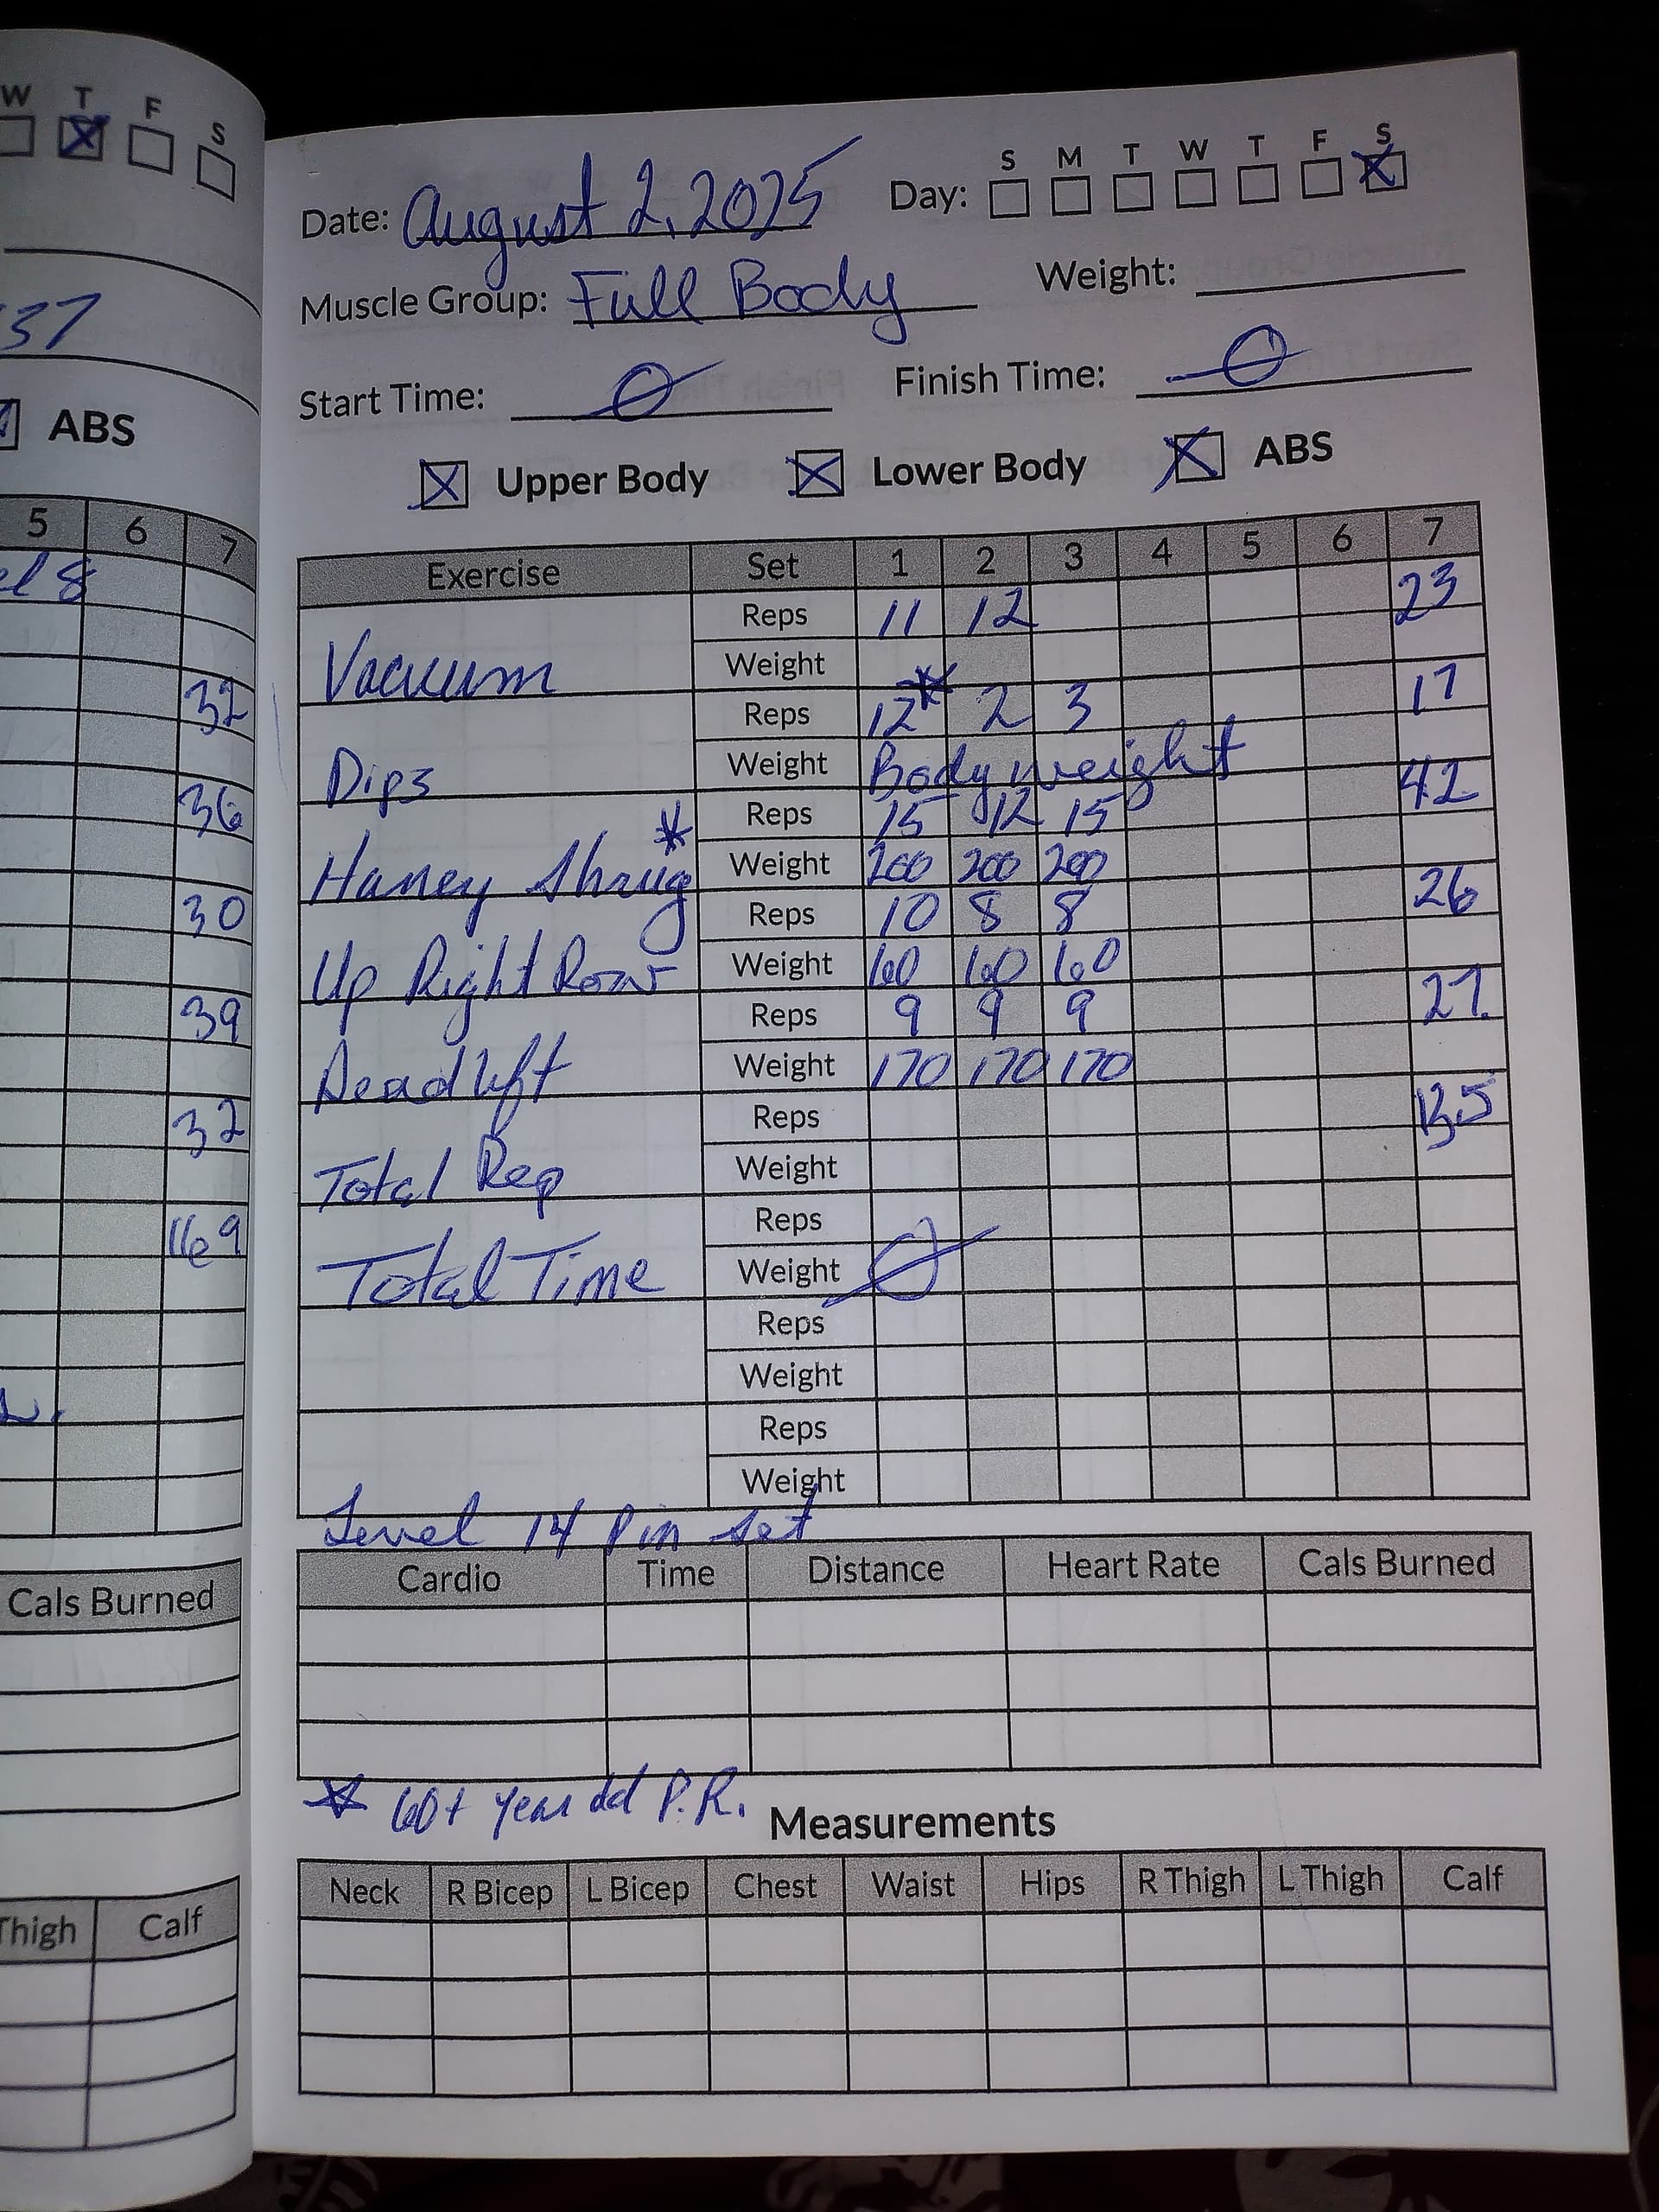 W T F S
37
ABS
5 6 7
el 8
32
36
30
39
32
169
Cals Burned
Thigh Calf
S M T W T F S
Date: August 2, 2025 Day:
Muscle Group: Full Body Weight:
Start Time: Finish Time:
Upper Body Lower Body ABS
Exercise Set 1 2 3 4 5 6 7
Reps 11 12 23
Vacuum Weight
Reps 12* 2 3 17
Dips Weight Body weight
Reps 15 12 15 42
Haney Shrug * Weight 200 200 200
Reps 10 8 8 26
Up Right Row Weight 60 60 60
Reps 9 9 9 27.
Deadlift Weight 170 170 170
Reps 135
Total Rep Weight
Reps
Total Time Weight
Reps
Weight
Reps
Weight
Level 14 Pin set
Cardio Time Distance Heart Rate Cals Burned
* 60+ year old P.R.
Measurements
Neck R Bicep L Bicep Chest Waist Hips R Thigh L Thigh Calf